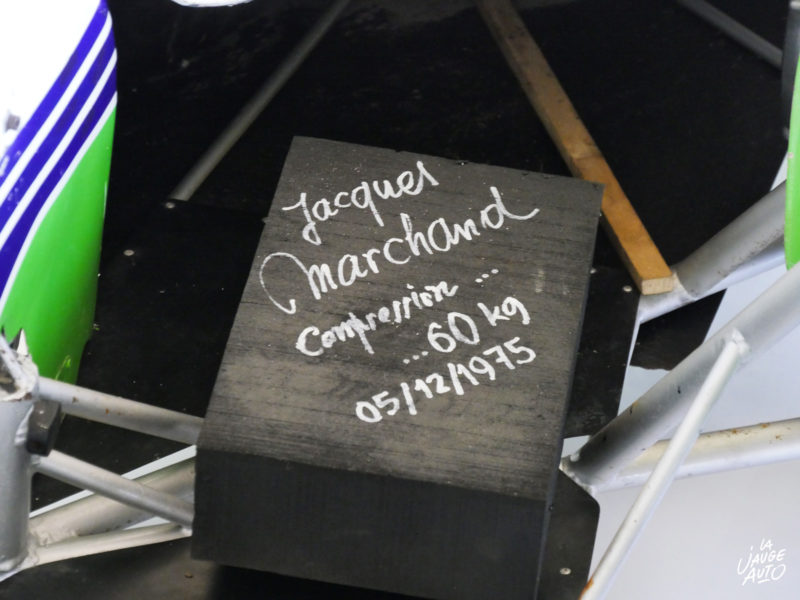 Jacques
Marchand
Compression ...
...60 kg
05/12/1975
LA
JAUGE
AUTO